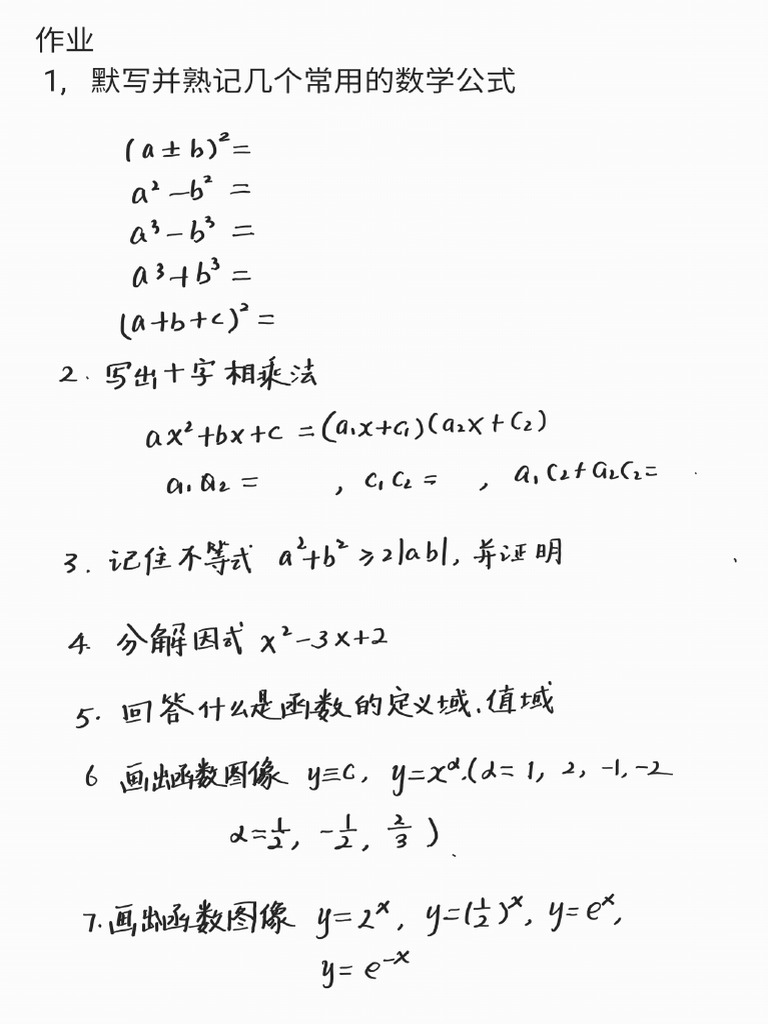 作业
1，默写并熟记几个常用的数学公式
(a ± b)² =
a² - b² =
a³ - b³ =
a³ + b³ =
(a+b+c)² =
2. 写出十字相乘法
ax²+bx+c = (a₁x+c₁)(a₂x+c₂)
a₁a₂ = , c₁c₂ = , a₁c₂+a₂c₂=
3. 记住不等式 a²+b² ≥ 2|ab|, 并证明
4. 分解因式 x²-3x+2
5. 回答什么是函数的定义域.值域
6 画出函数图像 y≡c, y=xᵅ.(α= 1, 2, -1, -2
α=1/2, -1/2, 2/3)
7. 画出函数图像 y=2ˣ, y=(1/2)ˣ, y=eˣ,
y= e⁻ˣ